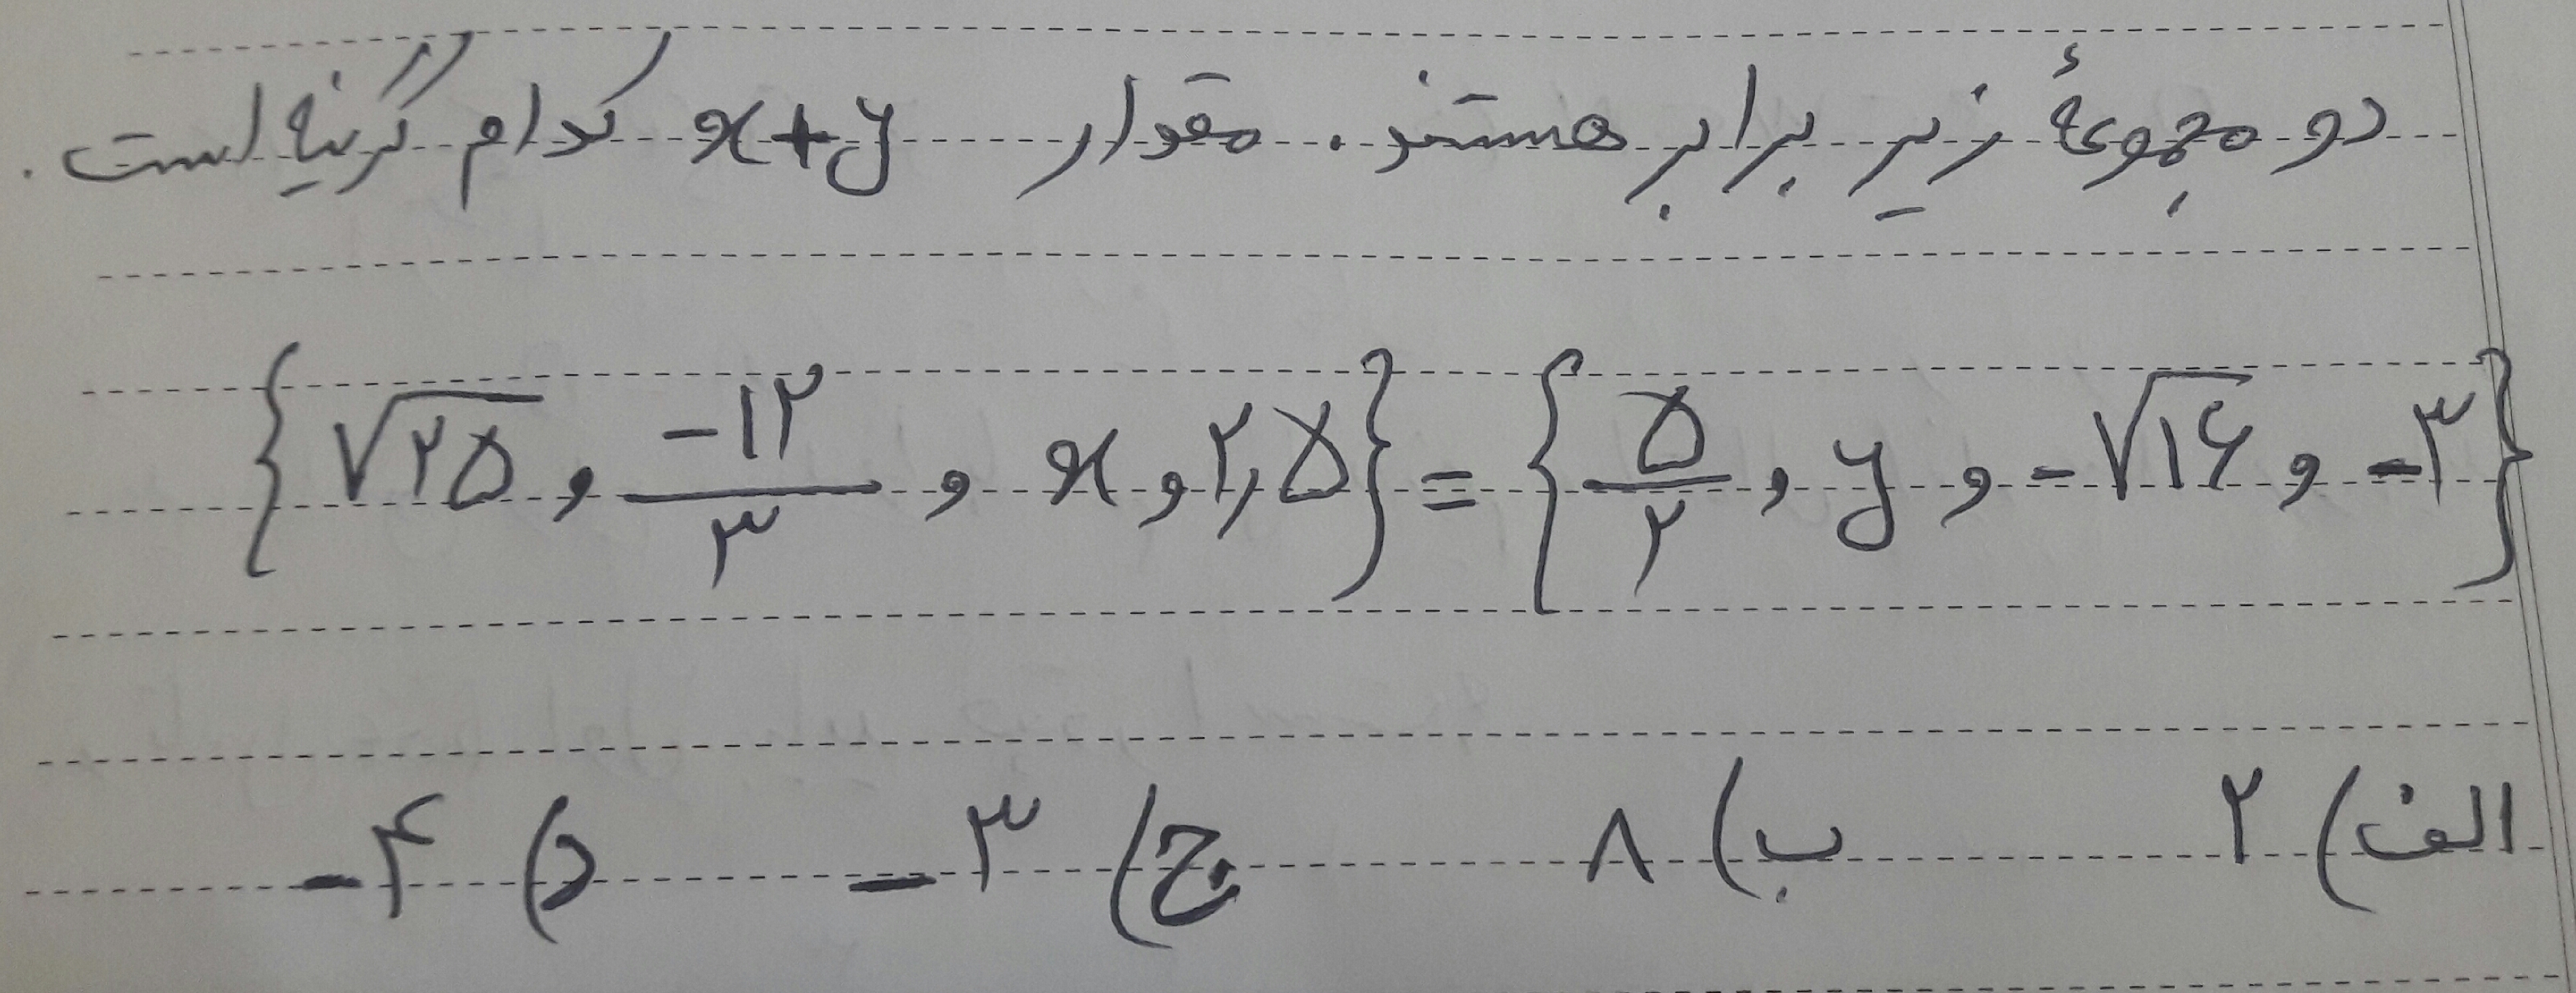 دو مجموعهٔ زیر برابر هستند. مقدار x+y کدام گزینه است.
{√۲۵ , -۱۲/۳ , x , ۲,۵} = {۵/۲ , y , -√۱۶ , -۳}
الف) ۲ ب) ۸ ج) -۳ د) -۴